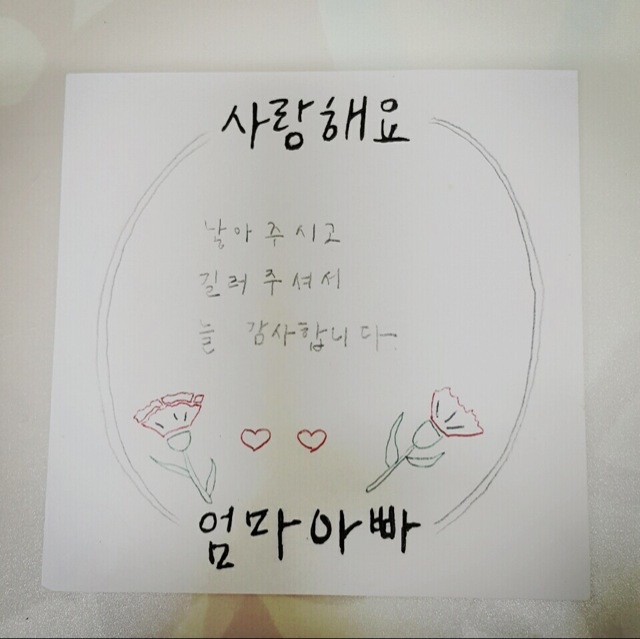 사랑해요
낳아주시고
길러주셔서
늘 감사합니다.
엄마아빠